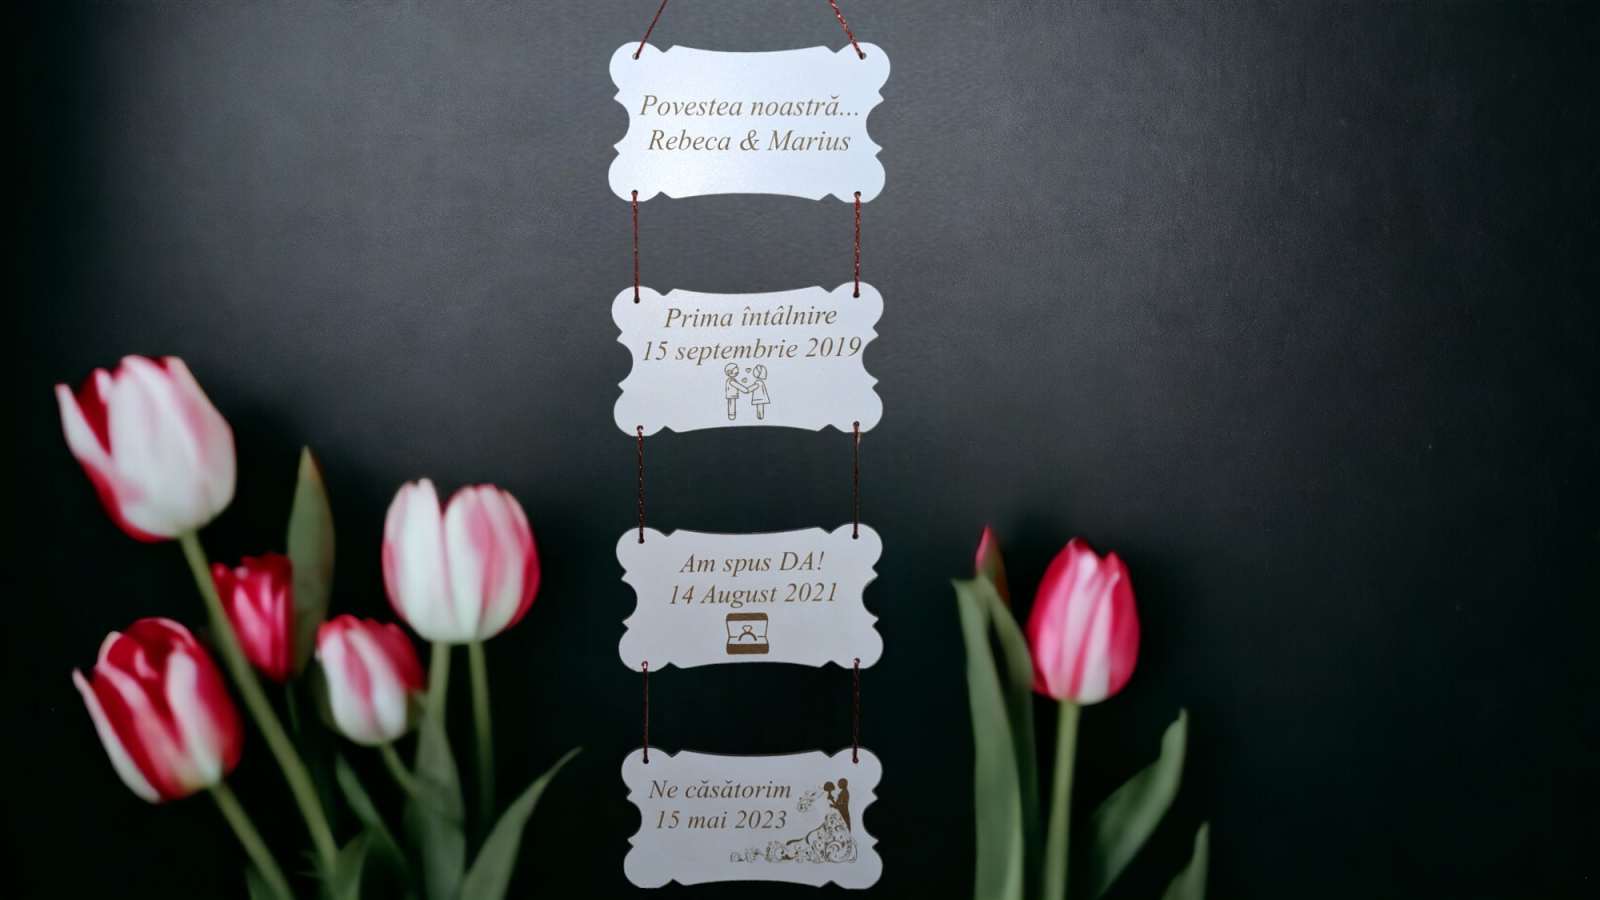 Povestea noastră...
Rebeca & Marius
Prima întâlnire
15 septembrie 2019
Am spus DA!
14 August 2021
Ne căsătorim
15 mai 2023